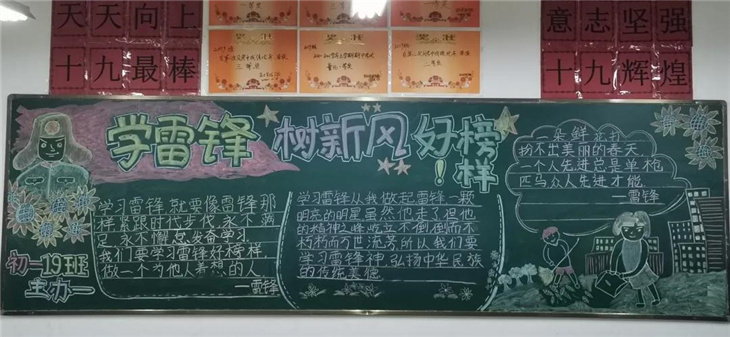 天天向上
十九最棒
意志坚强
十九辉煌
奖状
奖状
奖状
三等奖
学雷锋 树新风 好榜样!
学习雷锋就要像雷锋那
样紧跟时代步伐永不满
足永不懈怠发奋学习
我们要学习雷锋好榜样
做一个为他人着想的人
—雷锋
初一19班
主办
学习雷锋从我做起雷锋一颗
明亮的明星虽然他走了但他
的精神之峰屹立不倒倒而不
朽朽而万世流芳所以我们要
学习雷锋神弘扬中华民族
的传统美德
一朵鲜花打
扮不出美丽的春天
一个人先进总是单枪
匹马众人先进才能
—雷锋